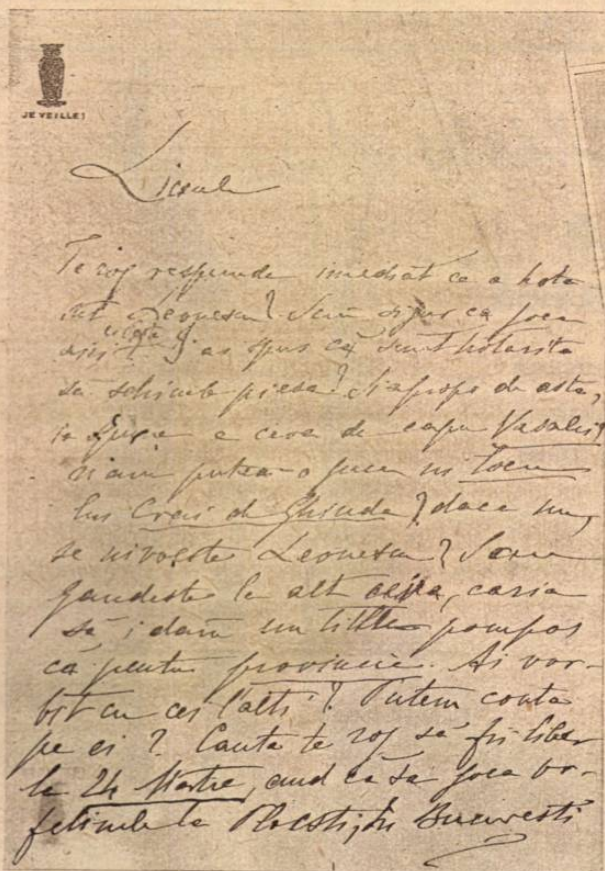 JE VEILLE!
Licule
Te rog respunde imediat ce a hota
rit Leonescu? Sunt sigur ca joca
as spus că sunt hotarita
să schimb piesa? Si apropo de asta,
e ceva de capu Vasalis
n'am putea-o juca in locu
lui Crai de Ghinda? daca nu,
se nivoeste Leonescu? Sau
gandeste la alt ceva, caria
să i dam un titllu pompos
că pentru provincie. Ai vor-
bit cu cei l'alti? Putem conta
pe ei? Cauta te rog să fii liber
la 24 Martie, aud că sa joca bo-
felimele la Ploesti, in Bucuresti